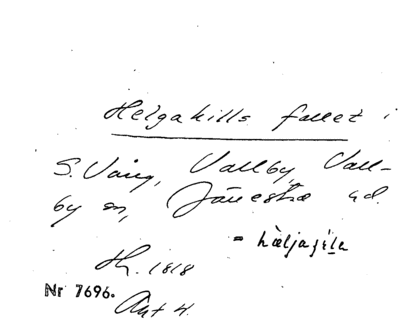 Helgakills fallet i
S. Vång, Vallby, Vall-
by sn, Järrestad hd.
= hæljaɉila
Hr. 1818
Nr 7696.
Akt 4.